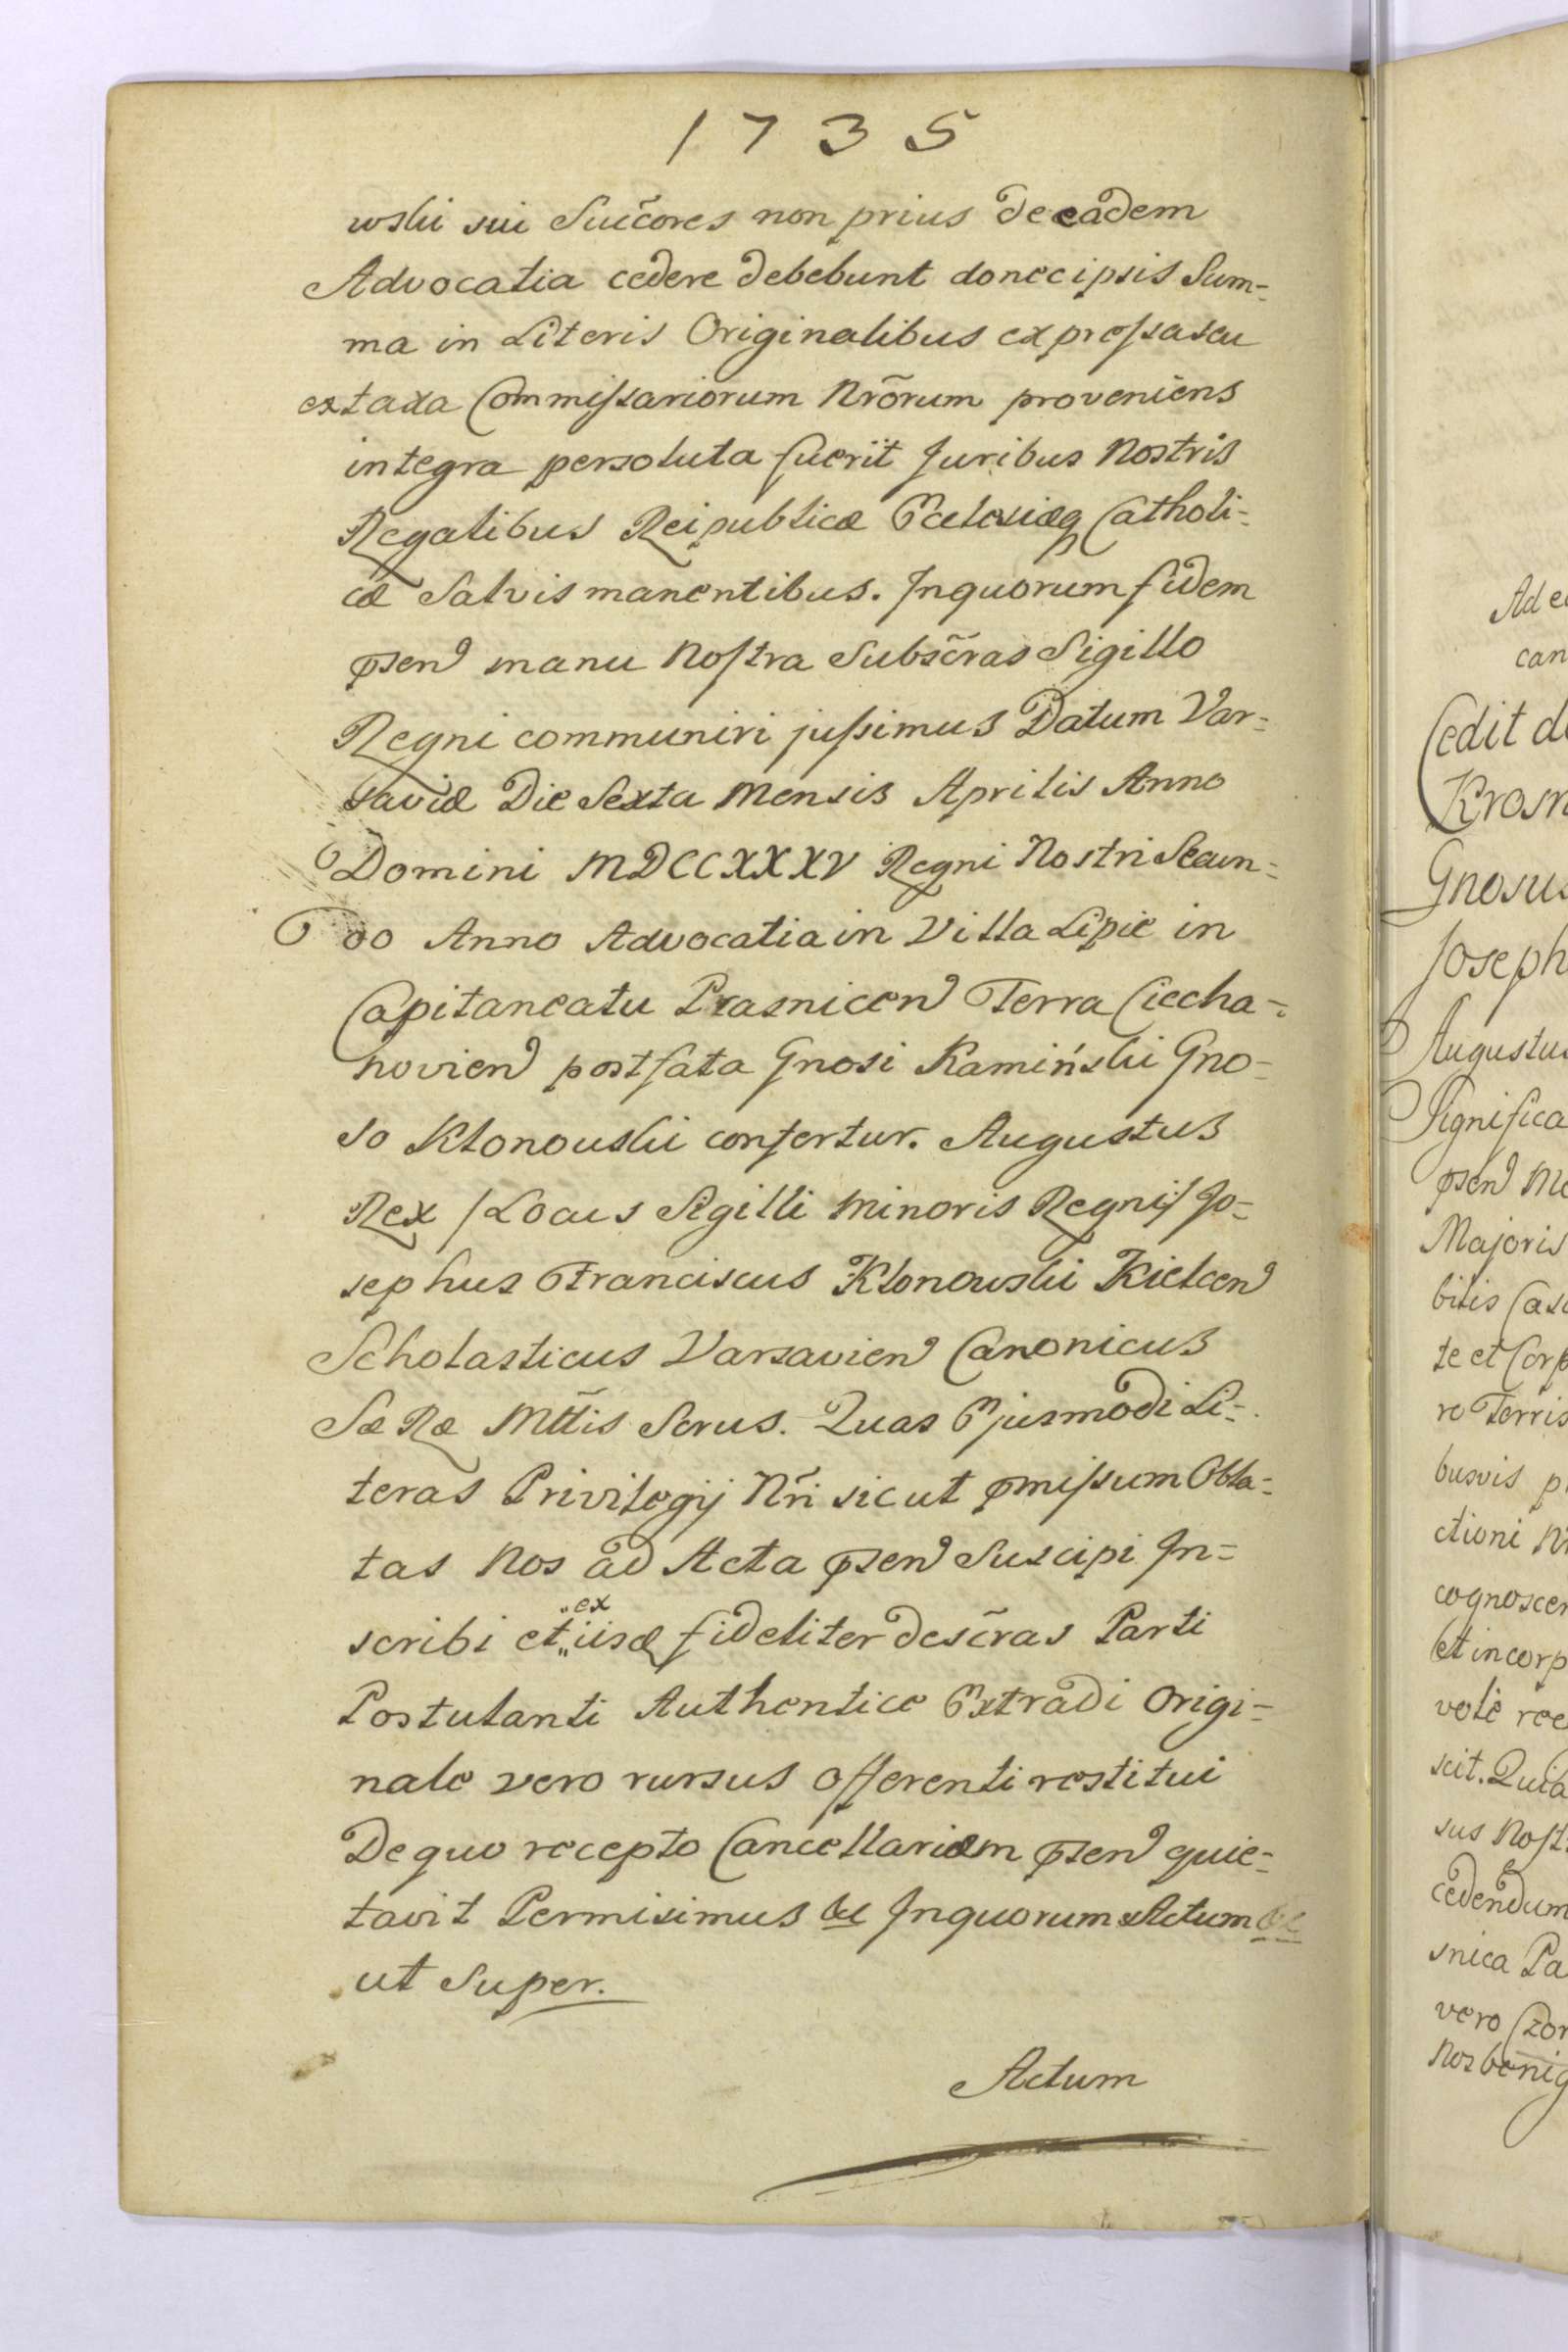 1735
wski sui Succ̃ores non prius de eadem
Advocatia cedere debebunt donec ipsis Sum=
ma in Literis Originalibus expressa seu
ex taxa Commissariorum Nrõrum proveniens
integra persoluta fuerit Juribus Nostris
Regalibus Reipublicæ Ecclesiæq Catholi=
cæ Salvis manentibus. In quorum fidem
psen manu Nostra Subsc̃ras Sigillo
Regni communiri jussimus Datum Var=
saviæ Die Sexta Mensis Aprilis Anno
Domini MDCCXXXV Regni Nostri Secun=
do Anno Advocatia in Villa Lipie in
Capitaneatu Prasnicen Terra Ciecha=
novien post fata Gnosi Kamiński Gno=
so Klonowski confertur. Augustus
Rex /Locus Sigilli Minoris Regni/ Jo=
sephus Franciscus Klonowski Kielcen
Scholasticus Varsavien Canonicus
Sæ Ræ Mttis Scrus. Quas Ejusmodi Li=
teras Privilegij Nr̃i sicut pmissum Obla=
tas Nos ad Acta psen Suscipi In=
scribi et "ex" iisd fideliter desc̃ras Parti
Postulanti Authentice Extradi Origi=
nale vero rursus offerenti restitui
De quo recepto Cancellariam psen quie=
tavit Permisimus &c In quorum Actum &c
ut Super.
Actum
Ad e
can
Cedit d
Krosn
Gnosus
Joseph
Augustus
Significa
psen M
Majoris
bilis Cas
te et Corp
ro Terris
busvis p
ctioni N
cognoscen
et incorp
vole rec
scit. Quib
sus Nost
cedendum
snica Pa
vero Czor
Nos benig